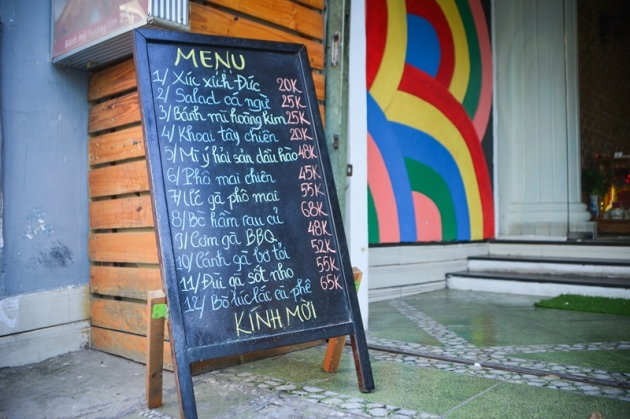 Bánh mỳ hoàng kim
MENU
1/ Xúc xích Đức 20K
2/ Salad cá ngừ 25K
3/ Bánh mì hoàng kim 25K
4/ Khoai tây chiên 20K
5/ Mì ý hải sản dầu hào 48K
6/ Phô mai chiên 45K
7/ Ức gà phô mai 55K
8/ Bò hầm rau củ 68K
9/ Cơm gà BBQ 48K
10/ Cánh gà bơ tỏi 52K
11/ Đùi gà sốt nho 55K
12/ Bò lúc lắc cà phê 65K
KÍNH MỜI